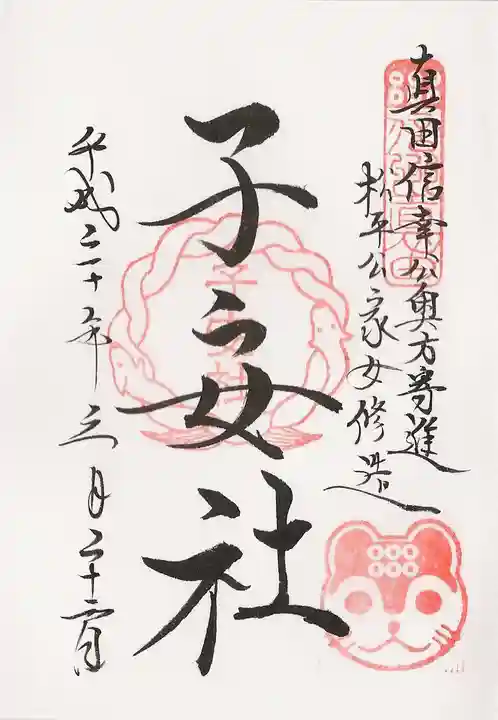 真田信幸公奥方寄進
松平公家女修造
子安社
平成二十年三月二十二日